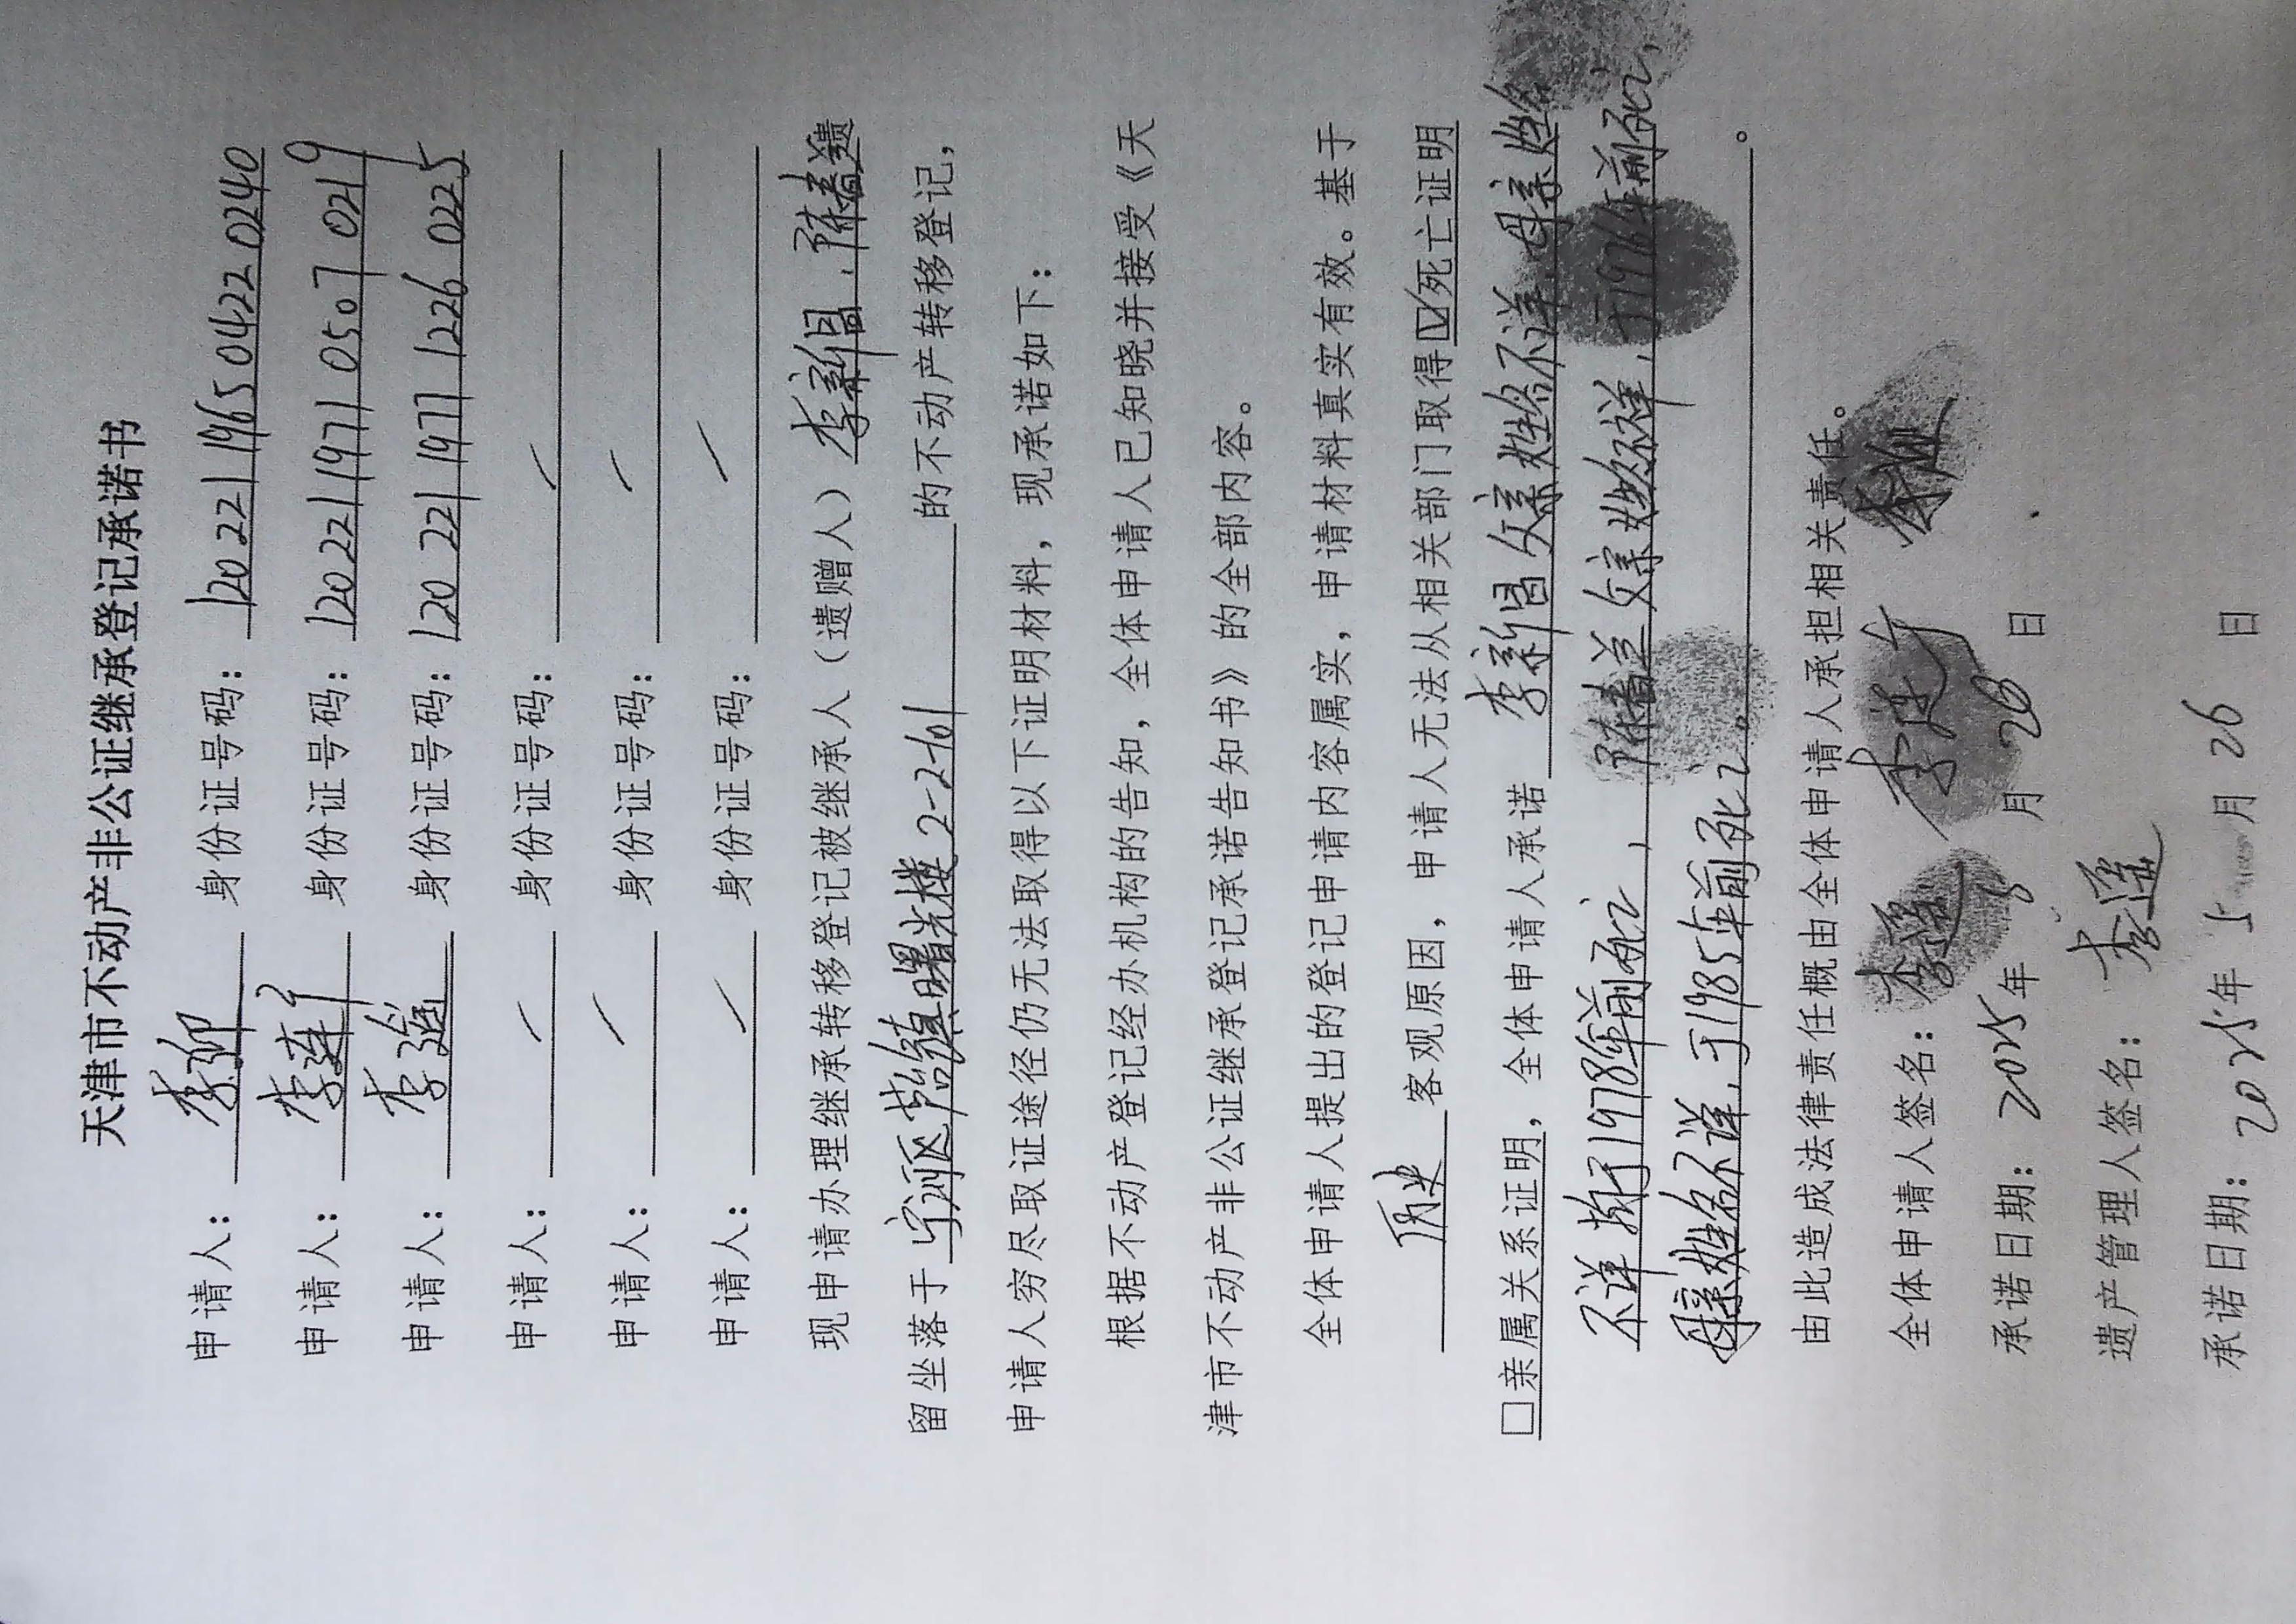 天津市不动产非公证继承登记承诺书
申请人：李 身份证号码：120221196504220240
申请人：李莲 身份证号码：120221197105070219
申请人：李 身份证号码：120221197712260225
申请人： 身份证号码：
申请人： 身份证号码：
申请人： 身份证号码：
现申请办理继承转移登记被继承人（遗赠人）李新昌，陈春兰遗
留坐落于宁河区芦台镇曙光楼2-2-101的不动产转移登记，
申请人穷尽取证途径仍无法取得以下证明材料，现承诺如下：
根据不动产登记经办机构的告知，全体申请人已知晓并接受《天
津市不动产非公证继承登记承诺告知书》的全部内容。
全体申请人提出的登记申请内容属实，申请材料真实有效。基于
历史客观原因，申请人无法从相关部门取得☑死亡证明
□亲属关系证明，全体申请人承诺李新昌父亲姓名不详，母亲姓名
不详，于1978年前死亡，陈春兰父亲姓名不祥，于1976年前死亡，
母亲姓名不详，于1985年前死亡。
由此造成法律责任概由全体申请人承担相关责任。
全体申请人签名：李 李 李
承诺日期：2025年 月26日
遗产管理人签名：李
承诺日期：2025年5月26日